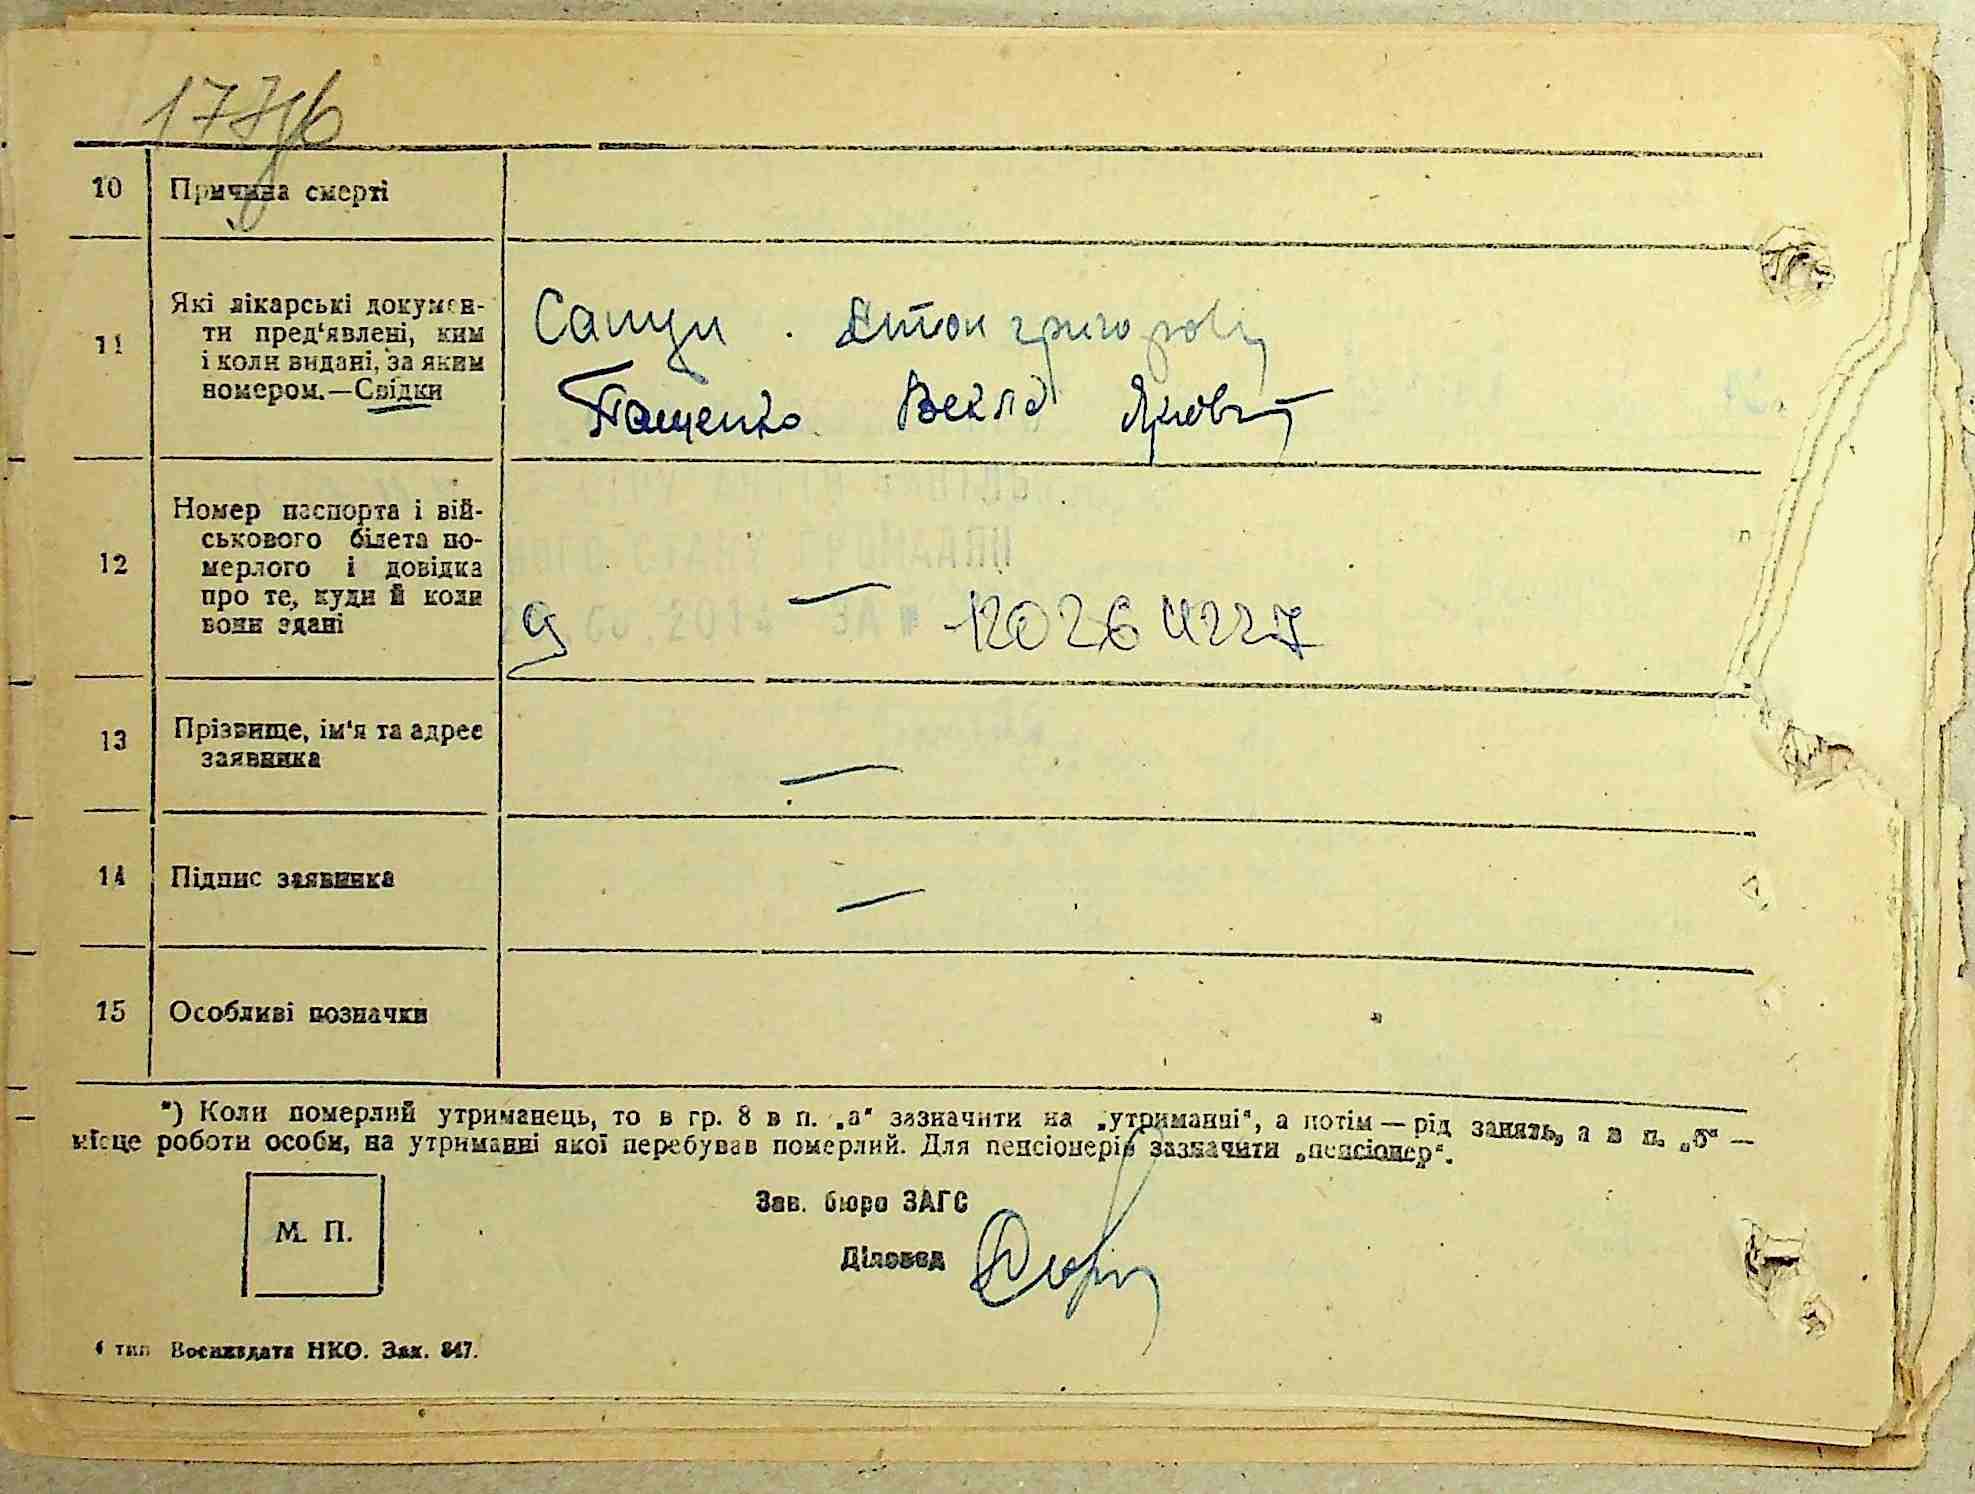 10 Причина смерті
11 Які лікарські докумен-
ти пред'явлені, ким
і коли видані, за яким
номером.—Свідки
Антон Григорович
Пащенко Векла Яківна
12 Номер паспорта і вій-
ськового білета по-
мерлого і довідка
про те, куди й коли
вони здані
— 120264227
13 Прізвище, ім'я та адрес
заявника
—
14 Підпис заявника
—
15 Особливі позначки
*) Коли померлий утриманець, то в гр. 8 в п. „а" зазначити на „утриманні", а потім — рід занять, а в п. „б" —
місце роботи особи, на утриманні якої перебував померлий. Для пенсіонерів зазначити „пенсіонер".
М. П.
Зав. бюро ЗАГС
Діловод
4 тип Воениздата НКО. Зак. 847.